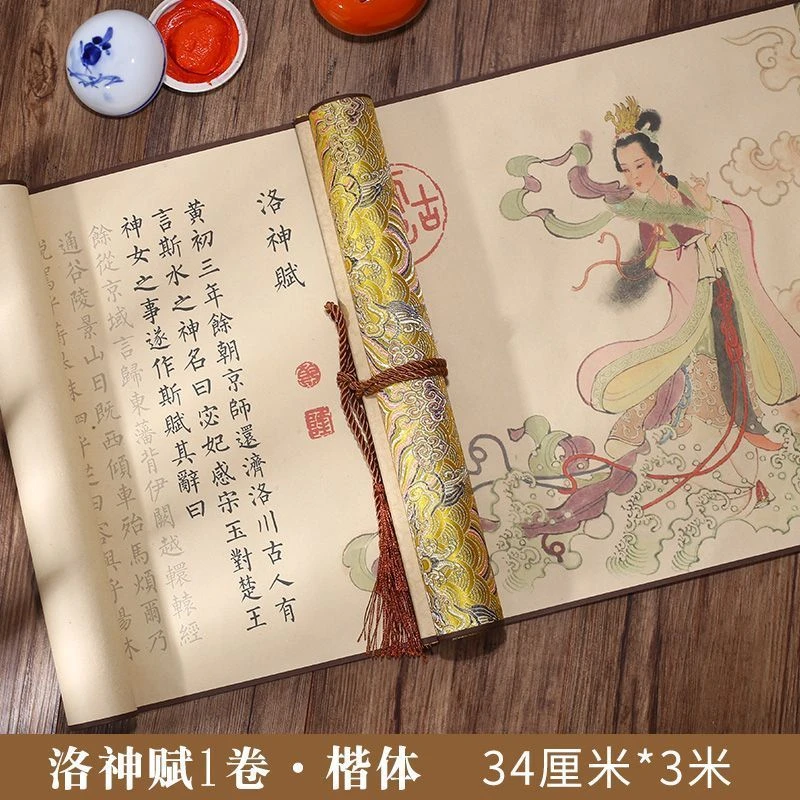 洛神賦
黄初三年餘朝京師還濟洛川古人有
言斯水之神名曰宓妃感宋玉對楚王
神女之事遂作斯賦其辭曰
餘從京域言歸東藩背伊闕越轘轅經
通谷陵景山日既西傾車殆馬煩爾乃
古
洛神赋1卷·楷体 34厘米*3米